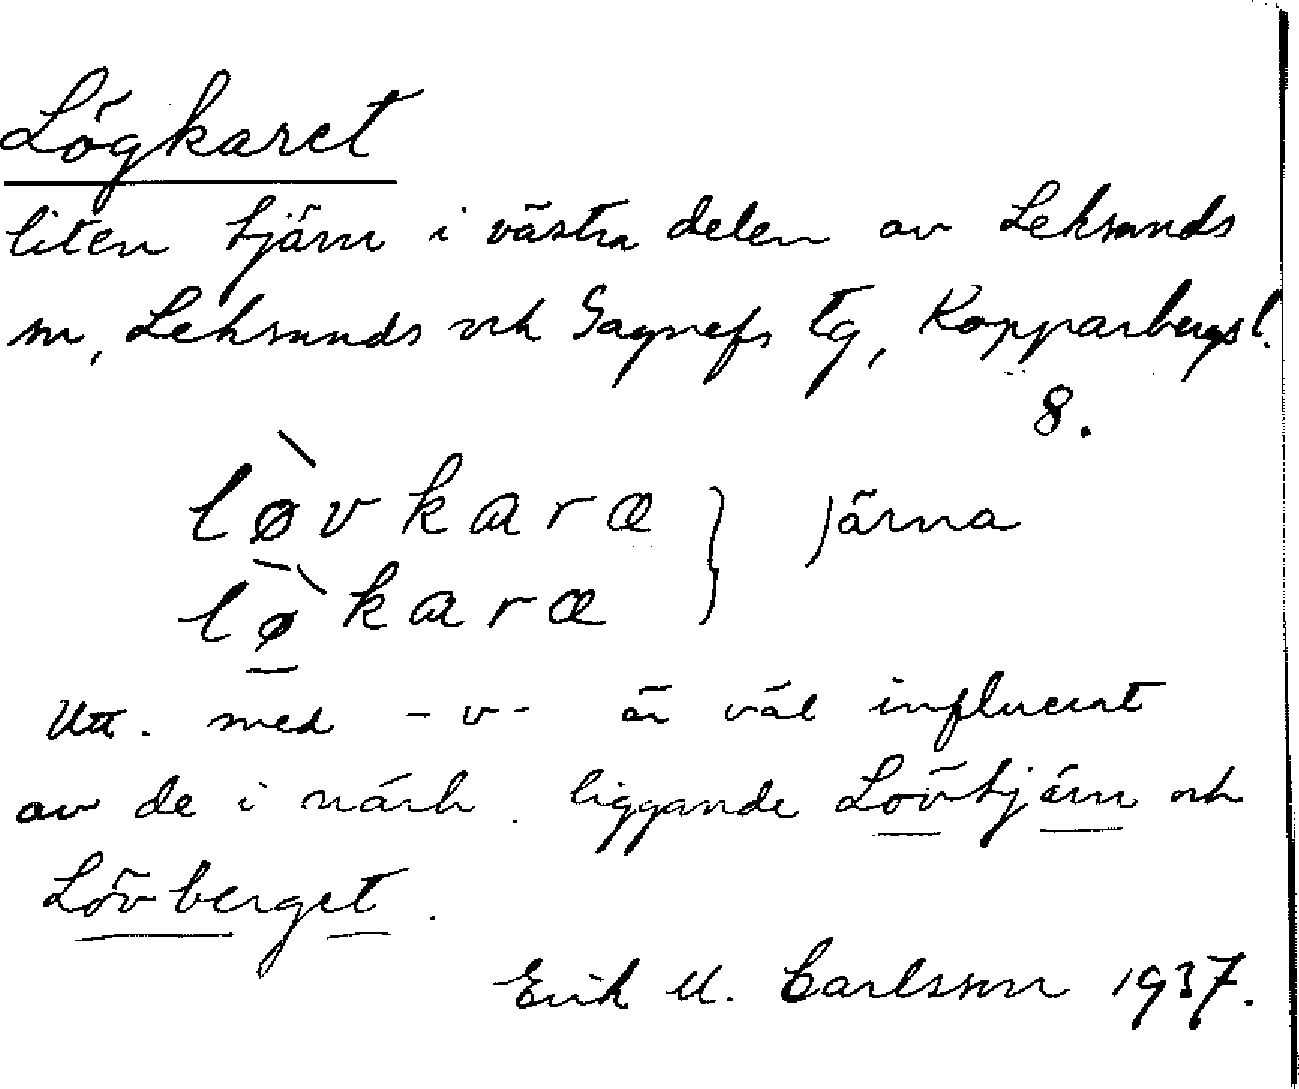 Lögkaret
liten tjärn i västra delen av Leksands
sn, Leksands och Gagnefs tg, Kopparbergs l.
8.
lø̀vkaræ } Järna
lø̀karæ
Utt. med -v- är väl influerat
av de i närh. liggande Lövtjärn och
Lövberget.
Erik U. Carlsson 1937.